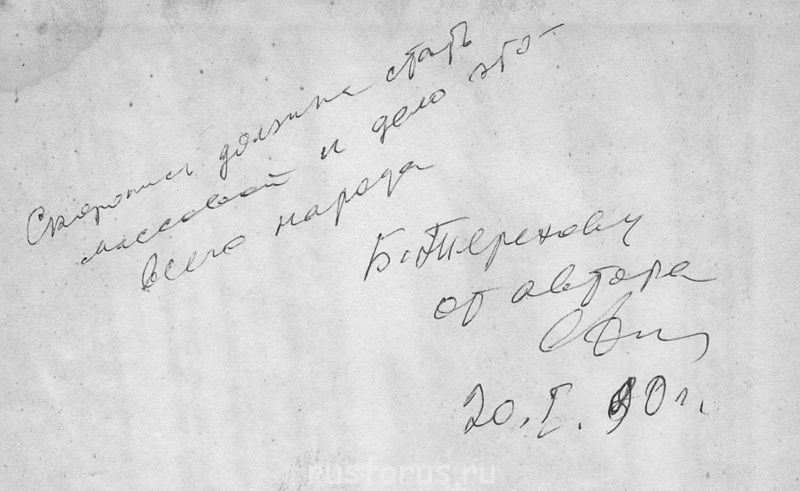 Скоропись должна стать
массовой и дело это -
всего народа
Б. Терехову
от автора
20. I. 90 г.
rusforus.ru